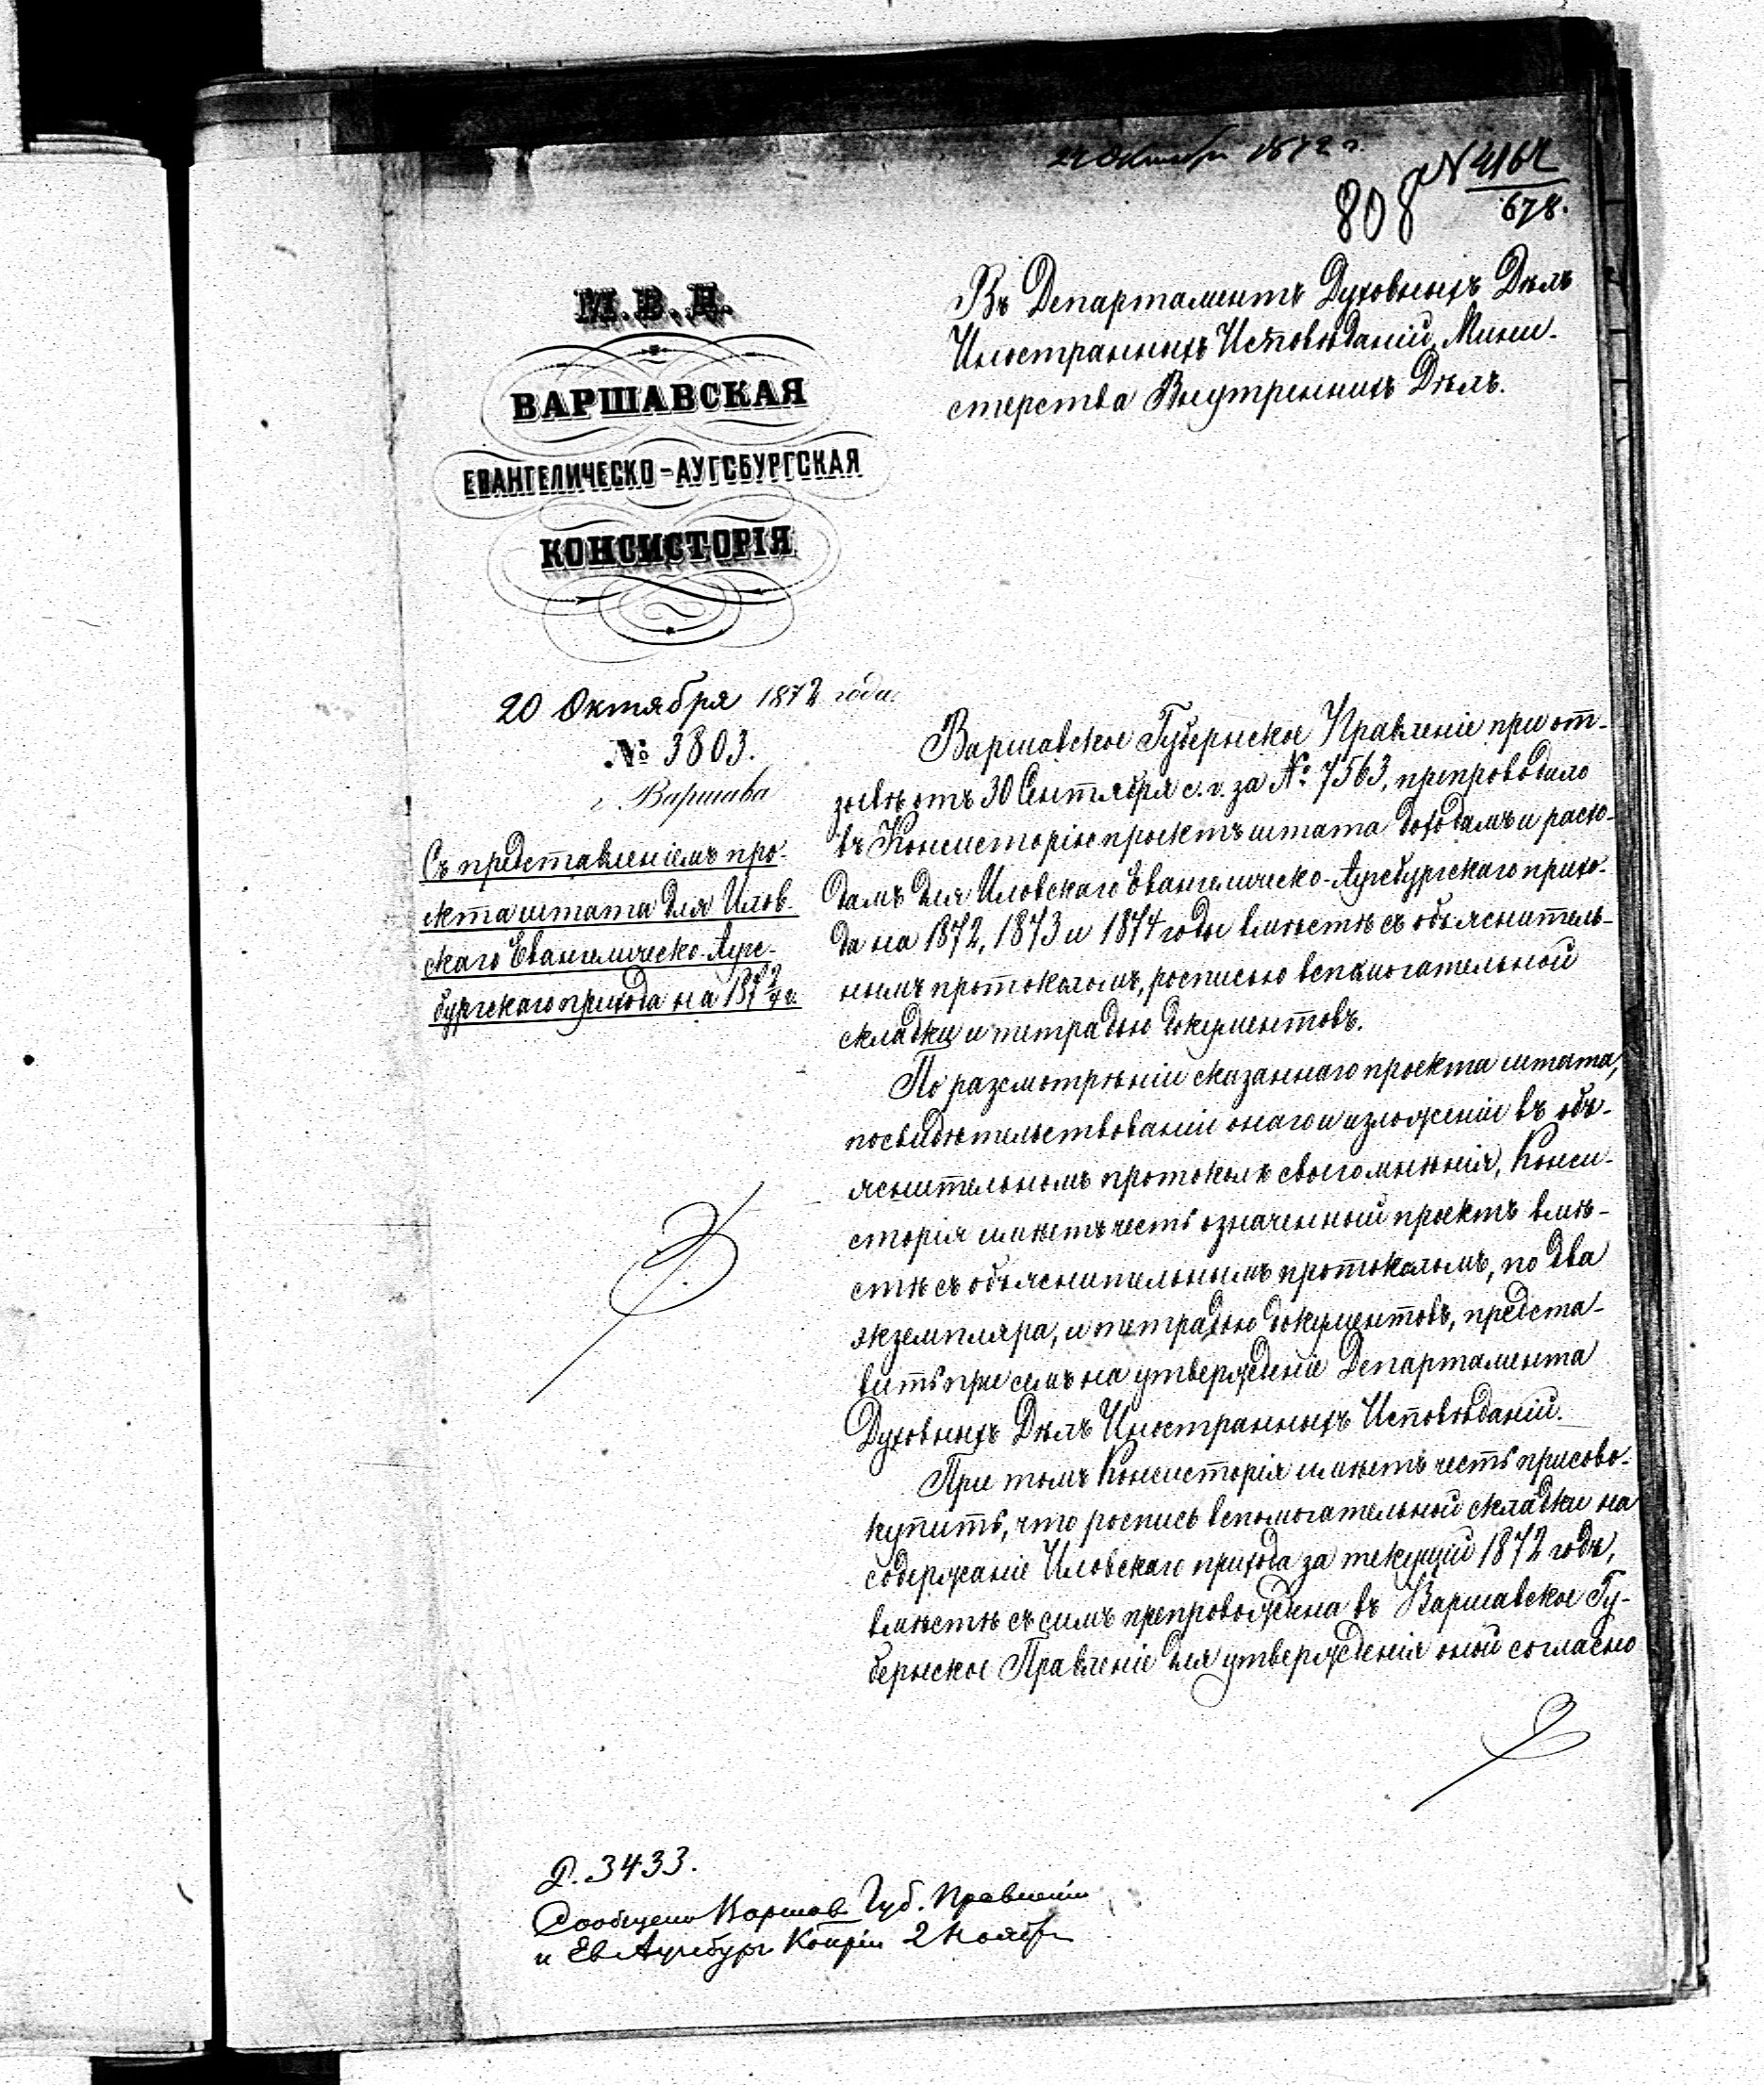 24 Октября 1872 г.
808 № 4164
678.
М. В. Д.
ВАРШАВСКАЯ
ЕВАНГЕЛИЧЕСКО-АУГСБУРГСКАЯ
КОНСИСТОРІЯ
20 Октября 1872 года.
№ 3803.
г. Варшава
Съ представленіемъ про-
екта штата для Илов-
скаго Евангелическо-Аугс-
бургскаго прихода на 187 2/4 г.
Въ Департаментъ Духовныхъ Дѣлъ
Иностранныхъ Исповѣданій Мини-
стерства Внутреннихъ Дѣлъ.
Варшавское Губернское Правленіе при от-
зывѣ отъ 30 Сентября с. г. за № 7563, препроводило
въ Консисторію проектъ штата доходамъ и расхо-
дамъ для Иловскаго Евангелическо-Аугсбургскаго прихо-
да на 1872, 1873 и 1874 годы вмѣстѣ съ объяснитель-
нымъ протоколомъ, росписью вспомогательной
складки и тетрадью документовъ.
По разсмотрѣніи сказаннаго проекта штата,
посвидѣтельствованіи онаго и изложеніи въ объ-
яснительномъ протоколѣ своего мнѣнія, Конси-
сторія имѣетъ честь означенный проектъ вмѣ-
стѣ съ объяснительнымъ протоколомъ, по два
экземпляра, и тетрадью документовъ, предста-
вить при семъ на утвержденіе Департамента
Духовныхъ Дѣлъ Иностранныхъ Исповѣданій.
При томъ Консисторія имѣетъ честь присово-
купить, что роспись вспомогательной складки на
содержаніе Иловскаго прихода за текущій 1872 годъ,
вмѣстѣ съ симъ препровождена въ Варшавское Гу-
бернское Правленіе для утвержденія оной согласно
Р. 3433.
Сообщено Варшав Губ. Правленію
и Ев Аугсбург Консріи 2 Ноября